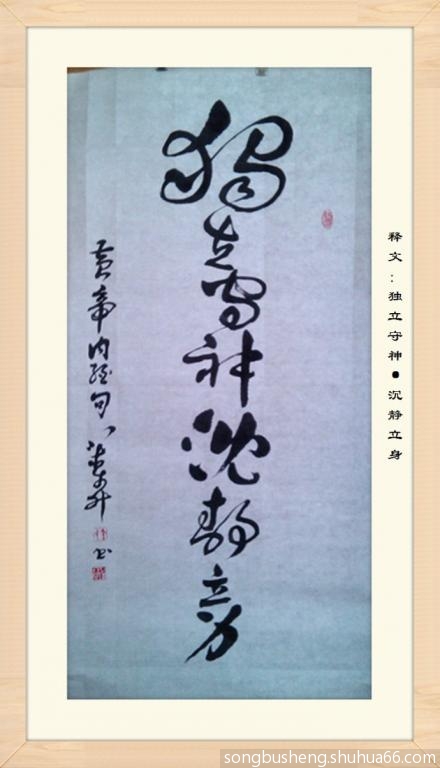 释文：独立守神●沉静立身
獨立守神沈靜立身
黃帝内經句
songbusheng.shuhua66.com